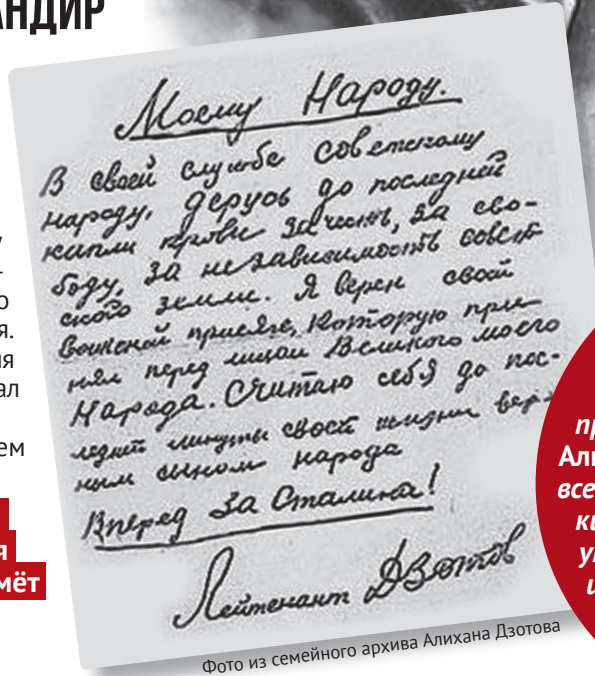 АНДИР
Моему Народу.
В своей службе Советскому
народу, дерусь до последней
капли крови за честь, за сво-
боду, за независимость совет-
ской земли. Я верен своей
воинской присяге, которую при-
нял перед лицом Великого моего
Народа. Считаю себя до пос-
ледней минуты своей жизни вер-
ным сыном народа
Вперед за Сталина!
Лейтенант Дзотов
Фото из семейного архива Алихана Дзотова
у
-
о
я.
ия
ал
ем
я
мёт
пр
Али
все
ки
у
и